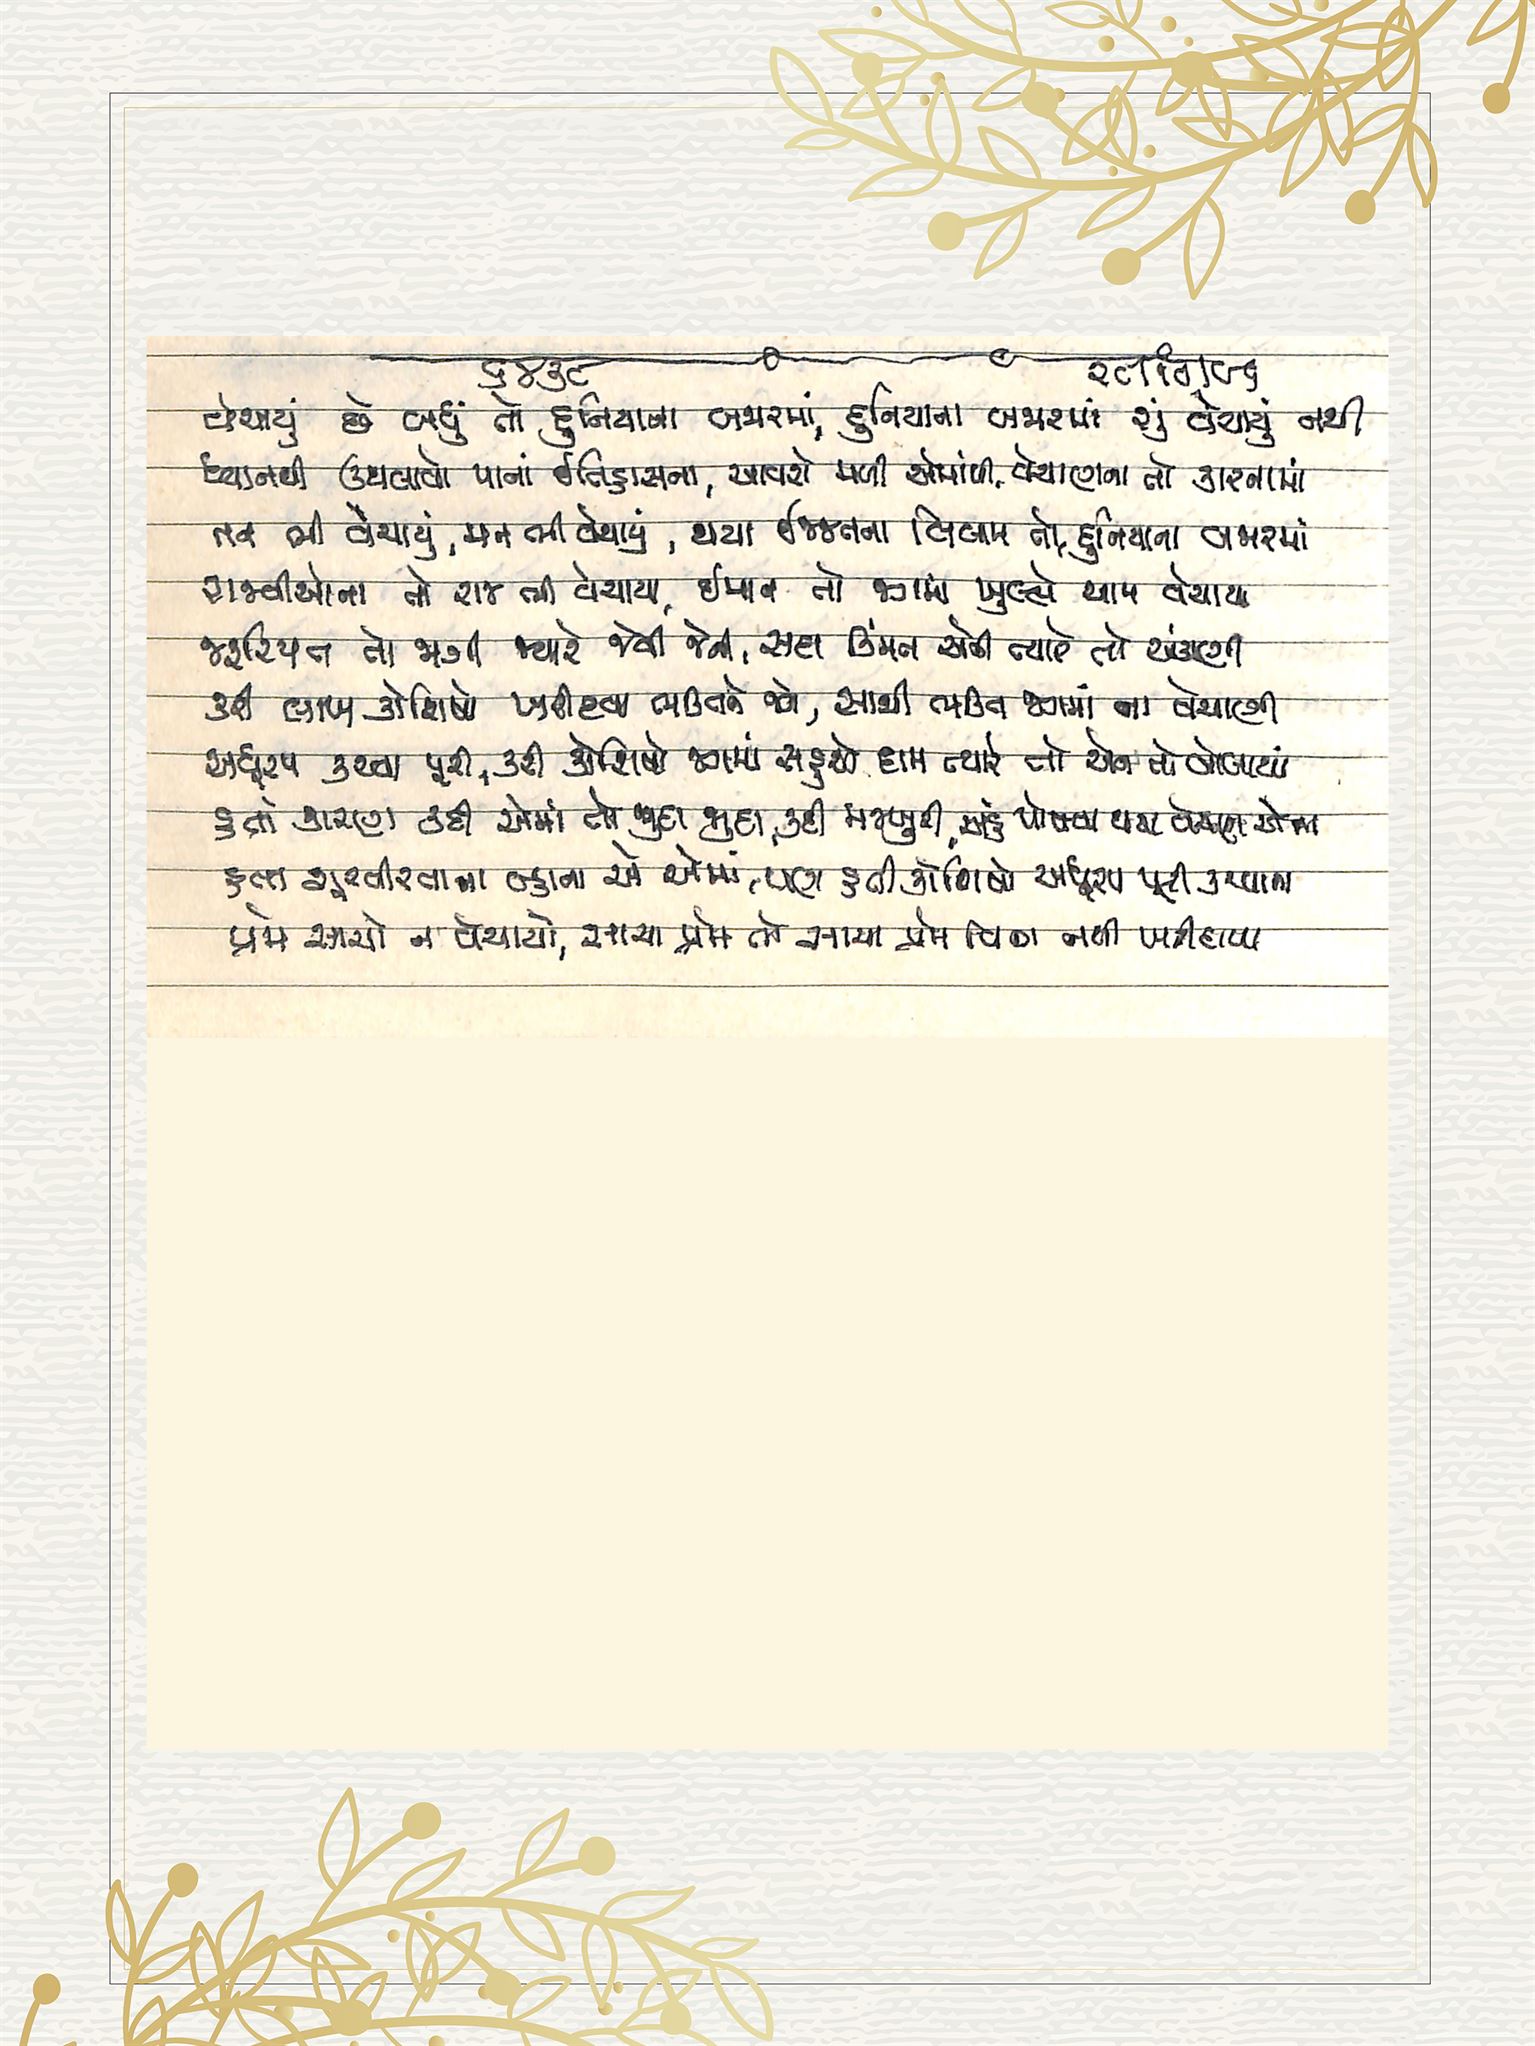 વેચાયું છે બધું તો દુનિયાના બજારમાં, દુનિયાના બજારમાં શું વેચાયું નથી
ધ્યાનથી ઉથલાવો પાનાં ઇતિહાસના, આવશે મળી એમાંથી, વેચાણના તો કારનામાં
તન ભી વેચાયું, મન ભી વેચાયું, થયા ઇજ્જતના લિલામ તો, દુનિયાના બજારમાં
રાજવીઓના તો રાજ ભી વેચાયા, ઈમાન તો જગમાં ખુલ્લે આમ વેચાયા
જરૂરિયાત તો જાગી જ્યારે જેવી જેની, સદા કિંમત એની ત્યારે તો અંકાણી
કરી લાખ કોશિષો ખરીદવા ભક્તિને જો, સાચી ભક્તિ જગમાં ના વેચાણી
અધૂરપ કરવા પૂરી, કરી કોશિષો જગમાં સહુએ દામ ત્યારે તો એના તો બોલાયાં
હતો કારણ કદી એમાં તો જુદા જુદા, કદી મજબુરી, અહં પોષવા થયા વેચાણ એના
હતા શૂરવીરતાના બ્હાના એ એમાં, પણ હતી કોશિષો અધૂરપ પૂરી કરવાના
પ્રેમ સાચો ન વેચાયો, સાચા પ્રેમ તો સાચા પ્રેમ વિના નથી ખરીદાયા